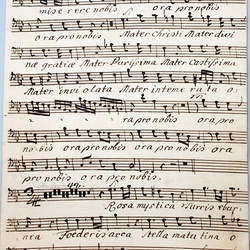 miserere nobis f. ora pro nobis
ora pro nobis Mater Christi Mater divi
næ gratiæ Mater Purissima Mater Castissima
Mater inviolata Mater intemerata o:
ra pro nobis ora pro
no-bis ora pro nobis ora pro nobis ora
pro nobis ora pro nobis.
Rosa mystica Turris ebur-
nea Foederis arca Stella matutina o